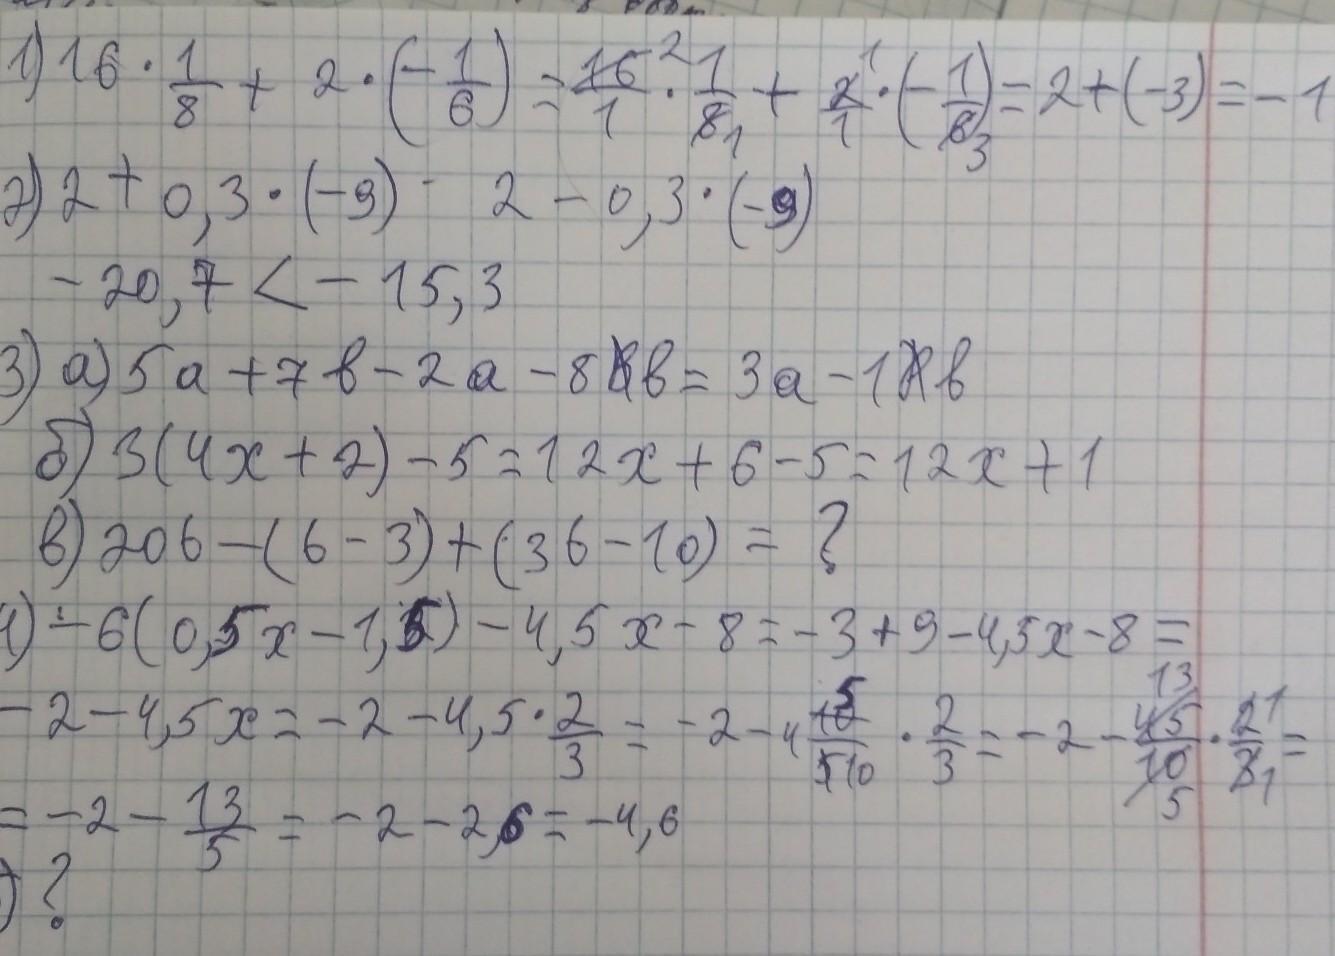 1) 16 · 1/8 + 2 · (- 1/6) = 16/1 2 · 1/8 1 + 2/1 1 · (- 1/6 3) = 2 + (-3) = - 1
2) 2 + 0,3 · (-9) - 2 - 0,3 · (-9)
- 20,7 < - 15,3
3) а) 5а + 7в - 2а - 8в = 3а - 1в
б) 3(4х + 2) - 5 = 12х + 6 - 5 = 12х + 1
в) 20б - (б - 3) + (3б - 10) = ?
4) - 6(0,5х - 1,5) - 4,5х - 8 = - 3 + 9 - 4,5х - 8 =
- 2 - 4,5х = - 2 - 4,5 · 2/3 = - 2 - 4 5/10 · 2/3 = - 2 - 45/10 13 5 · 2/3 1 1 =
= - 2 - 13/5 = - 2 - 2,6 = - 4,6
) ?